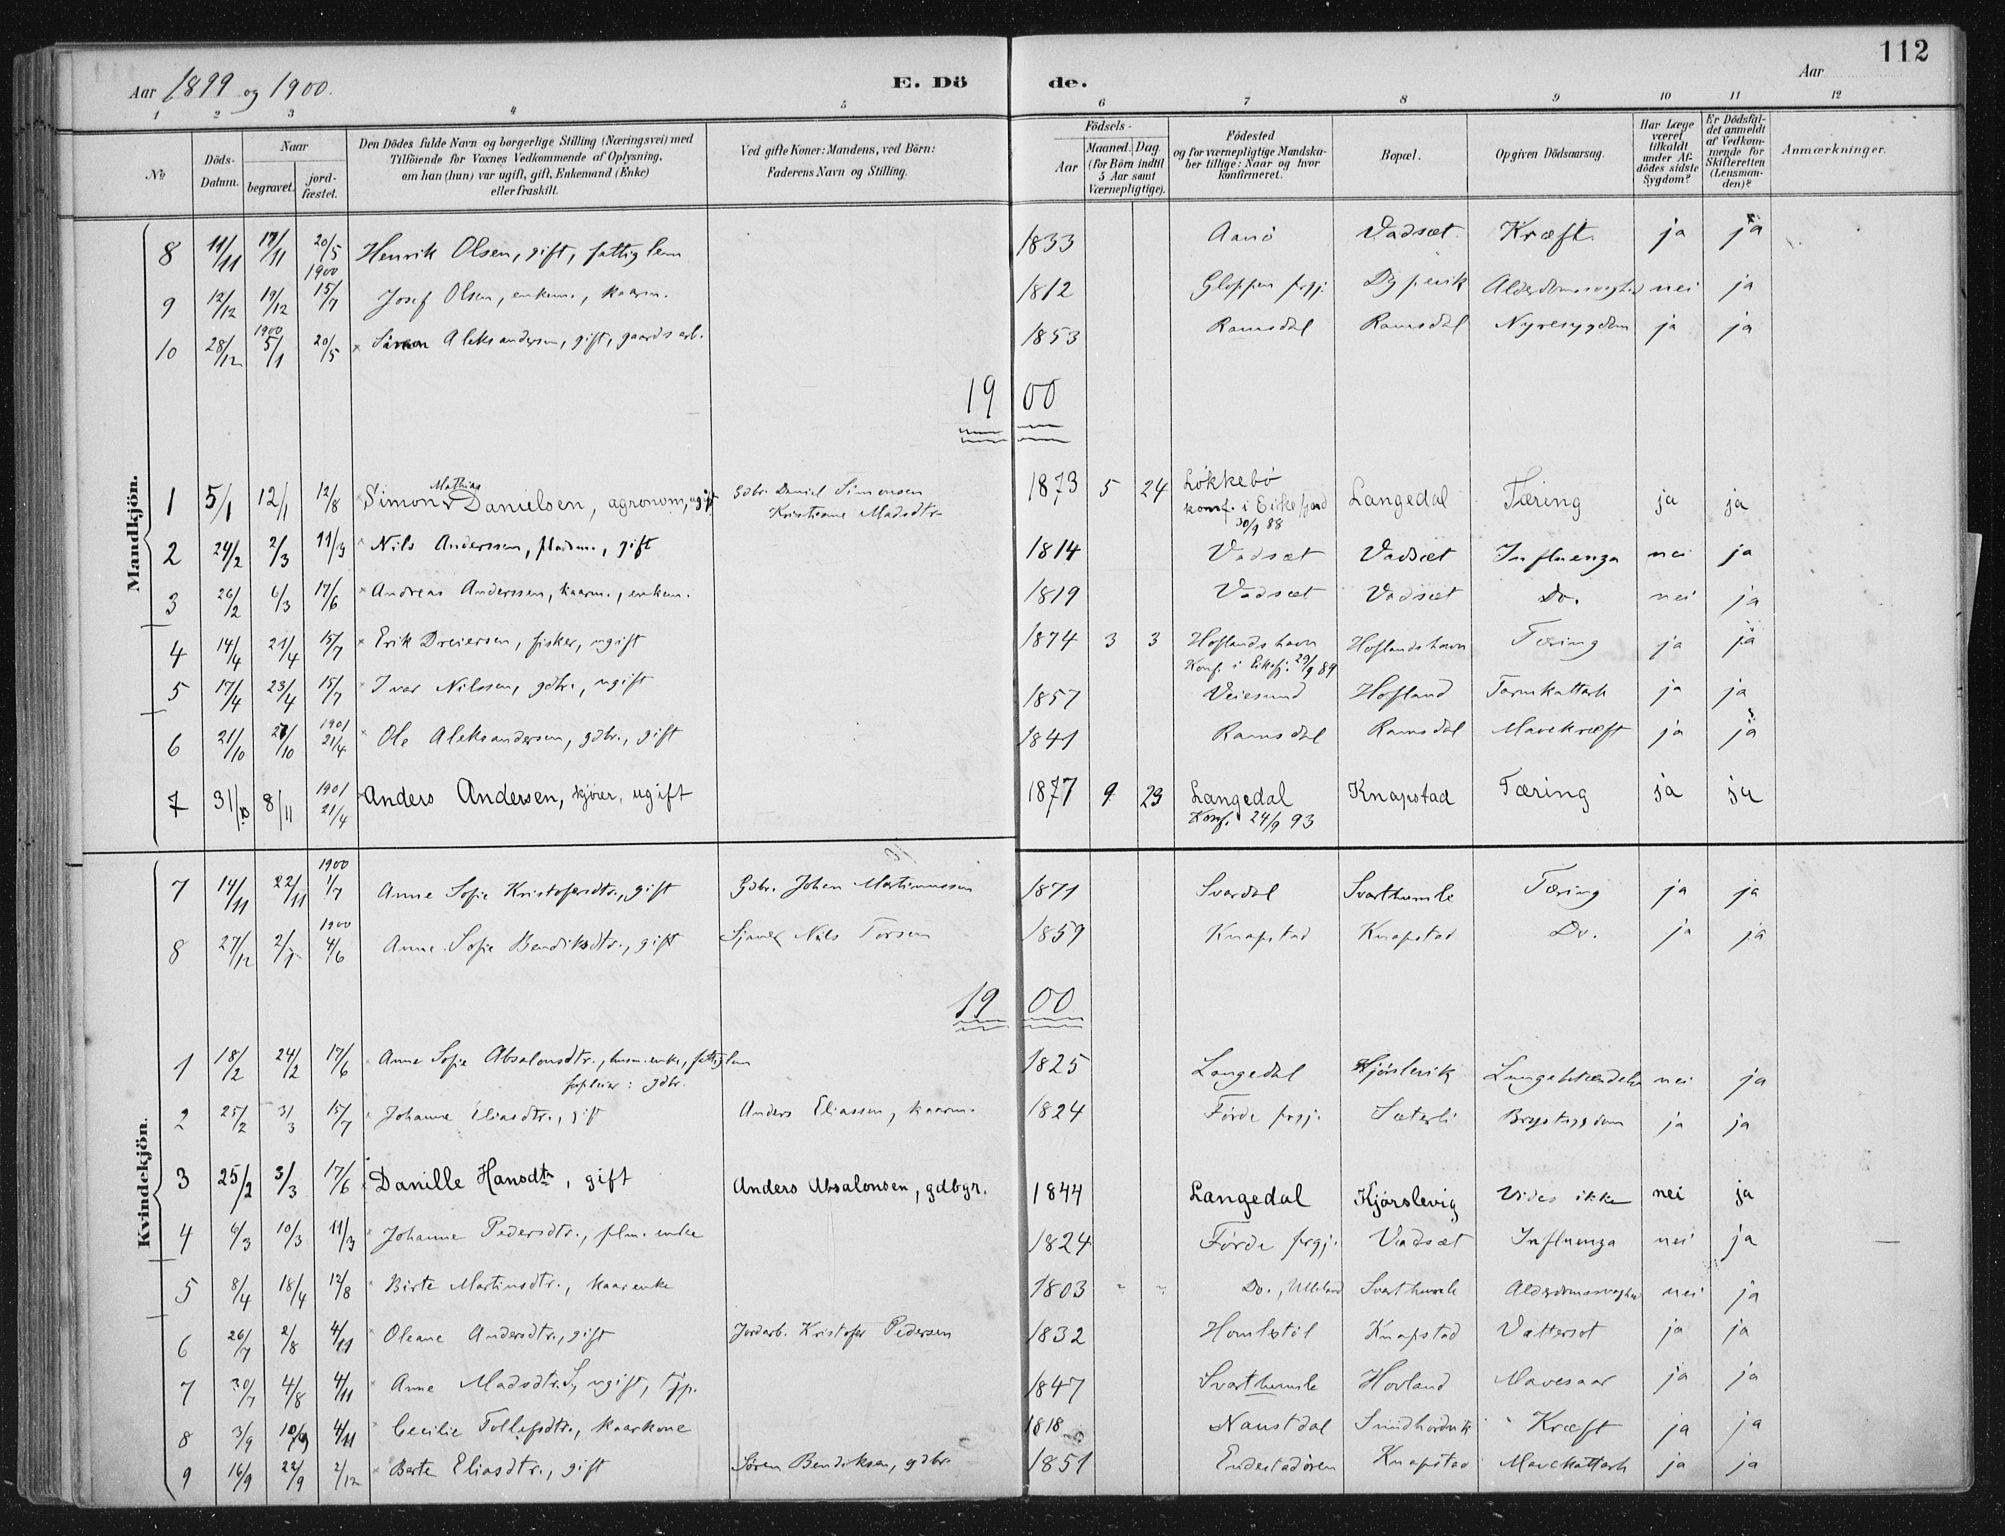 112
Aar 1899 og 1900.
E. Dö de.
Aar
1 2 3 4 5 6 7 8 9 10 11 12
No
Döds-Datum.
Naar
begravet.
jord-fæstet.
Den Dödes fulde Navn og borgerlige Stilling (Næringsvei) med
Tilföiende for Voxnes Vedkommende af Oplysning,
om han (hun) var ugift, gift, Enkemand (Enke)
eller fraskilt.
Ved gifte Koner: Mandens, ved Börn:
Faderens Navn og Stilling.
Födsels-
Aar
Maaned. Dag.
(for Börn indtil
5 Aar samt
Værnepligtige).
Födested
og for værnepligtige Mandska-
ber tillige: Naar og hvor
konfirmeret.
Bopæl.
Opgiven Dödsaarsag.
Har Læge
været
tilkaldt
under Af-
dödes sidste
Sygdom?
Er Dödsfal-
det anmeldt
af Vedkom-
mende for
Skifteretten
(Lensman-
den)?
Anmærkninger.
Mandkjön.
8 11/11 17/11 20/5 1900 Henrik Olsen, gift, fattiglem 1833 Aanö Vadsæt Kræft. ja ja
9 12/12 19/12 15/7 Josef Olsen, enkem., kaarm. 1812 Gloppen prgj. Dypevik Alderdomssvaghed nei ja
10 28/12 1900 5/1 20/5 Simon Aleksandersen, gift, gaardsarb. 1853 Ramsdal Ramsdal Nyresygdom ja ja
1900
1 5/1 12/1 12/8 Simon Mathias Danielsen, agronom, ugift Gdbr. Daniel Simonsen 1873 5 24 Lökkebö Langedal Tæring ja ja
Kristiane Madsdtr. konf. i Eikefjord
30/9 88
2 24/2 2/3 11/3 Nils Anderssen, pladsm., gift 1814 Vadsæt Vadsæt Influenza nei ja
3 26/2 6/3 17/6 Andreas Anderssen, kaarm., enkem. 1819 Vadsæt Vadsæt Do. nei ja
4 14/4 21/4 15/7 Erik Dreiersen, fisker, ugift 1874 3 3 Hoflandshavn Hoflandshavn Tæring ja ja
Konf. i Eikefj. 29/9 89
5 17/4 23/4 15/7 Ivar Nilssen, gdbr., ugift 1857 Veiesund Hofland Tarmkattarh ja ja
6 21/10 27/10 1901 21/4 Ole Aleksandersen, gdbr., gift 1841 Ramsdal Ramsdal Mavekræft ja ja
7 31/10 8/11 1901 21/4 Anders Andersen, skjöier, ugift 1877 9 29 Langedal Knapstad Tæring ja ja
Konf. 24/9 93
Kvindekjön.
7 14/11 22/11 1900 1/7 Anne Sofie Kristofersdtr., gift Gdbr. Johan Martinussen 1871 Svardal Svarthumle Tæring ja ja
8 27/12 2/1 1900 4/6 Anne Sofie Bendiksdtr., gift Nils Torsen 1859 Knapstad Knapstad Do. ja ja
1900
1 18/2 24/2 17/6 Anne Sofie Absalonsdtr., husm.enke, fattiglem 1825 Langedal Kjörslevik Lungebetændelse nei ja
forpleier: gdbr.
2 25/2 3/3 15/7 Johanne Eliasdtr., gift Anders Eliassen, kaarm. 1824 Förde prgj. Sæterli Brystsygdom ja ja
3 25/2 3/3 17/6 Danille Hansdtr, gift Anders Absalonsen, gdbgr. 1844 Langedal Kjörslevig Vides ikke nei ja
4 6/3 10/3 11/3 Johanne Pedersdtr., plm. enke 1824 Förde prgj. Vadsæt Influenza nei ja
5 8/4 18/4 12/8 Birte Martinusdtr., kaarenke 1803 " " Do., Ulleland Svarthumle Alderdomssvaghed nei ja
6 26/7 2/8 4/11 Oleane Andersdtr., gift Jordarb. Kristofer Pedersen 1832 Homlestöl Knapstad Vattersot ja ja
7 30/7 4/8 4/11 Anne Madsdtr., ugift, tjp. 1847 Svarthumle Hovland Mavesaar ja ja
8 3/9 10/9 4/11 Cecilie Tollefsdtr., kaarkone 1818 Naustdal Kræft ja ja
9 16/9 22/9 2/12 Berte Eliasdtr., gift Sören Bendiksen, gdbr. 1851 Endestadören Knapstad Mavekattarh ja ja